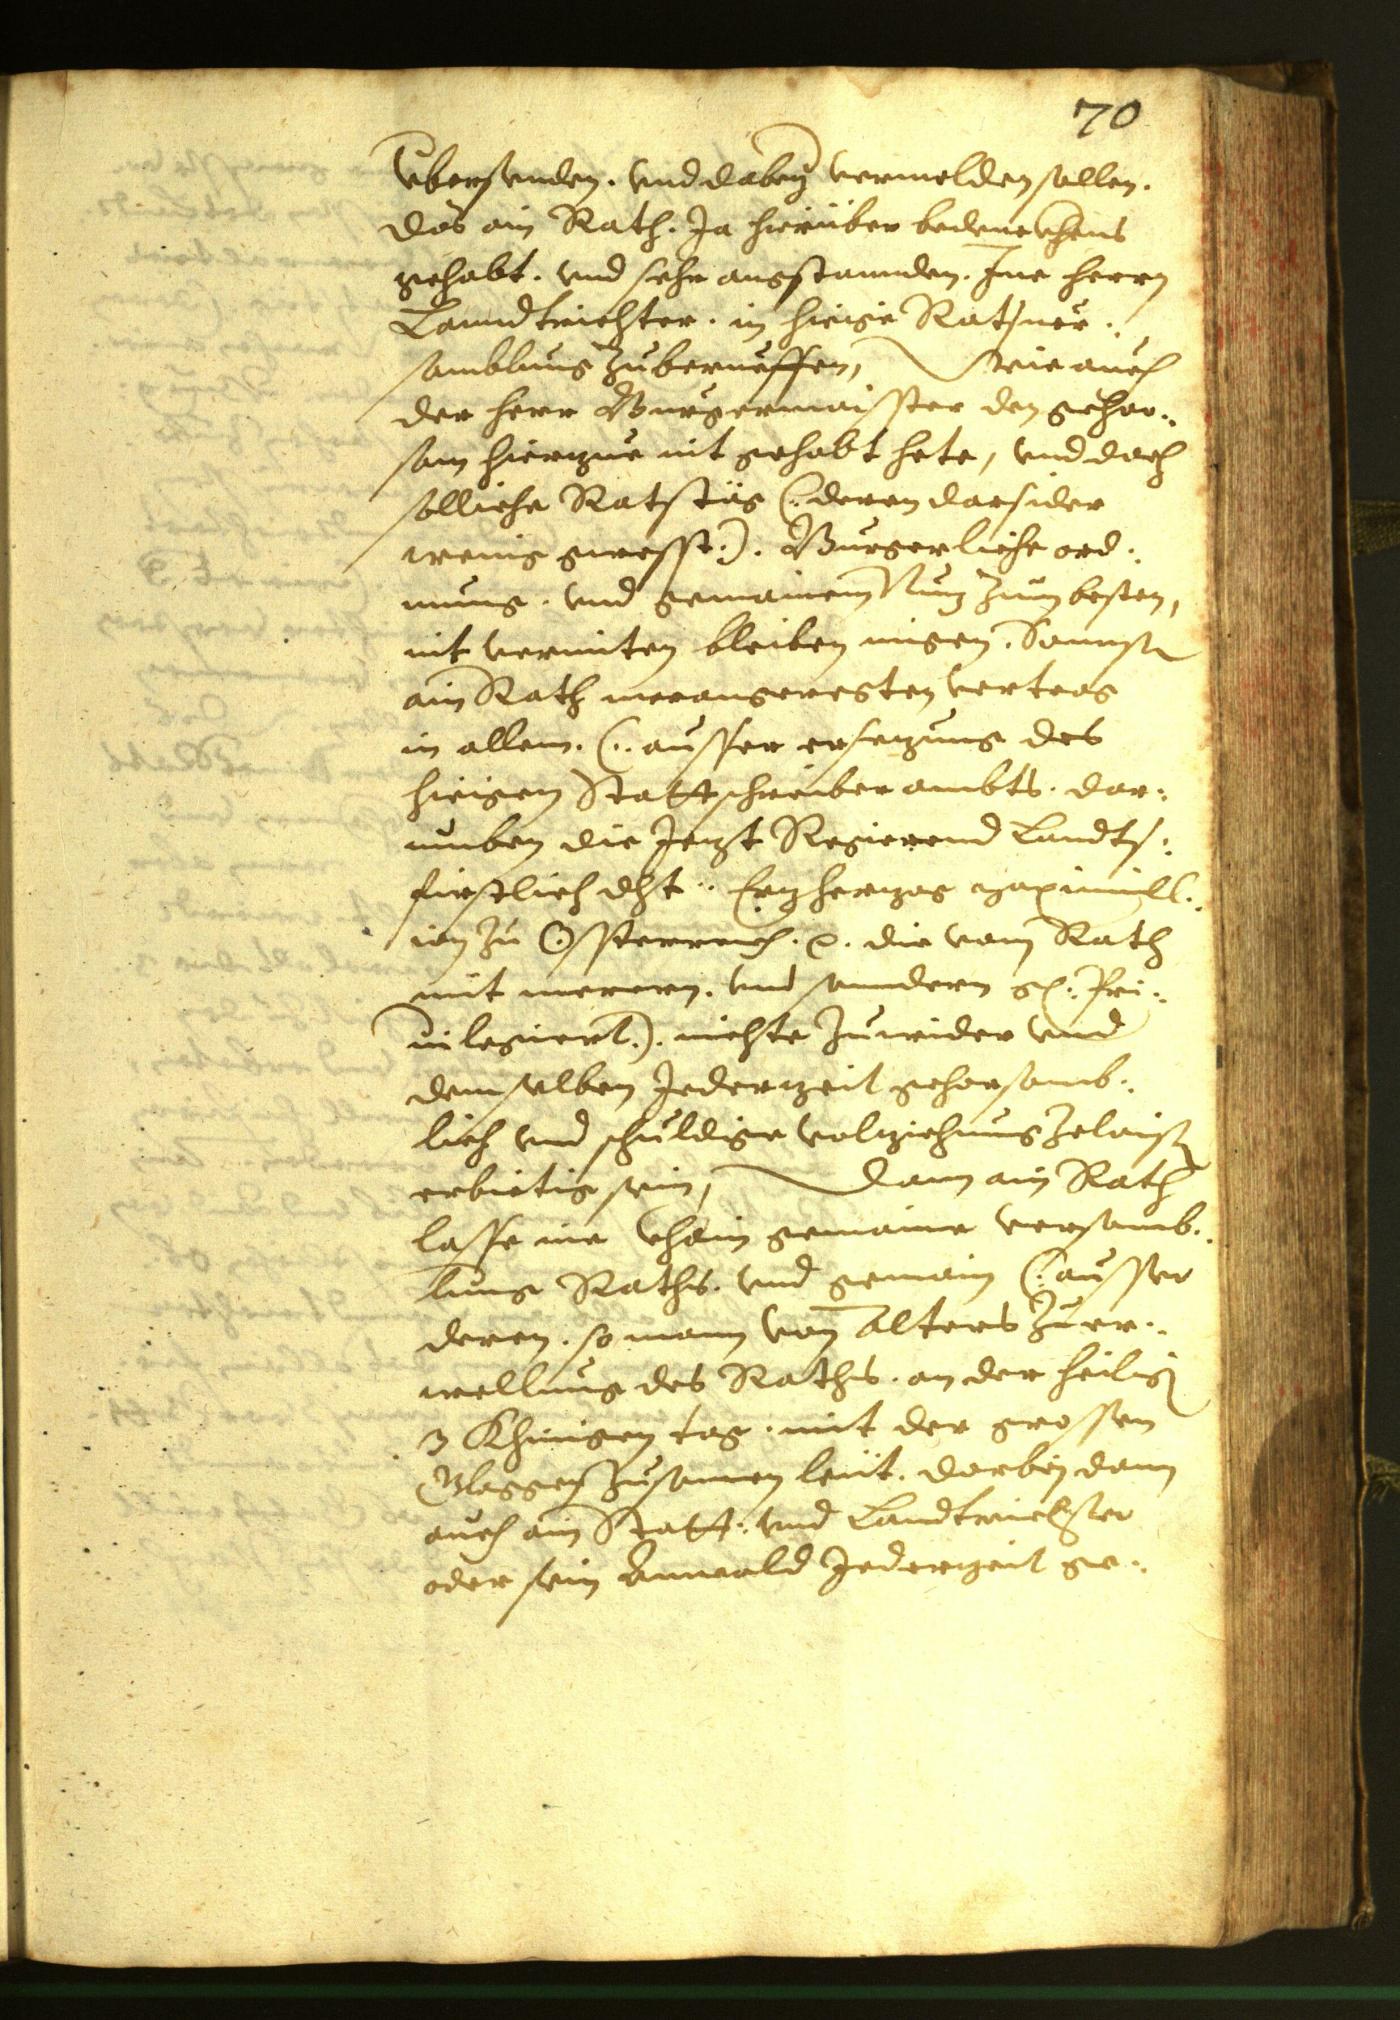 70
vbersenden. vnd dabeÿ vermelden sollen.
das ain Rath. Ja hierüber bedenckhens
gehabt. vnd sehr angstannden. Ine herrn
Lanndtrichter. in hieige Ratsver:
samblung zuberueffen, Wie auch
der herr Burgermaisster den gehor:
sam hierzue nit gehabt hete, vnd doch
solliche Ratstäg (: deren darsider
wenig gwesst:). Burgerliche ord:
nung. vnd gemainem Nuz zum besten,
nit vermiten bleiben migen. Sonnst
ain Rath merangeregten vertrag
in allem. (: ausser ersezung des
hieigen Stattschreiber ambts. dar:
umben die Jezt Regierend Landts:
fürstlich dht: Erzherzog maximill:
ian zu Össterreich. &. die vom Rath
mit merern. vnd sonndern gl: Pri:
uilegiert:). nichts zuwider vnd
demselben Jederzeit gehorsamb:
lich vnd schuldige volziehung zelaisten
erbietig sein, Dann ain Rath
lasse nie khain gemaine versamb:
lung Raths. vnd gemain (: ausser
deren. so mann von alters zu er:
wellung des Raths. an der heilig
3 Khinigen tag. mit der grossen
Gloggen zusamen leüt. darbeÿ dann
auch ain Statt: vnd Landtrichter
oder sein Anwald Jederzeit ge: